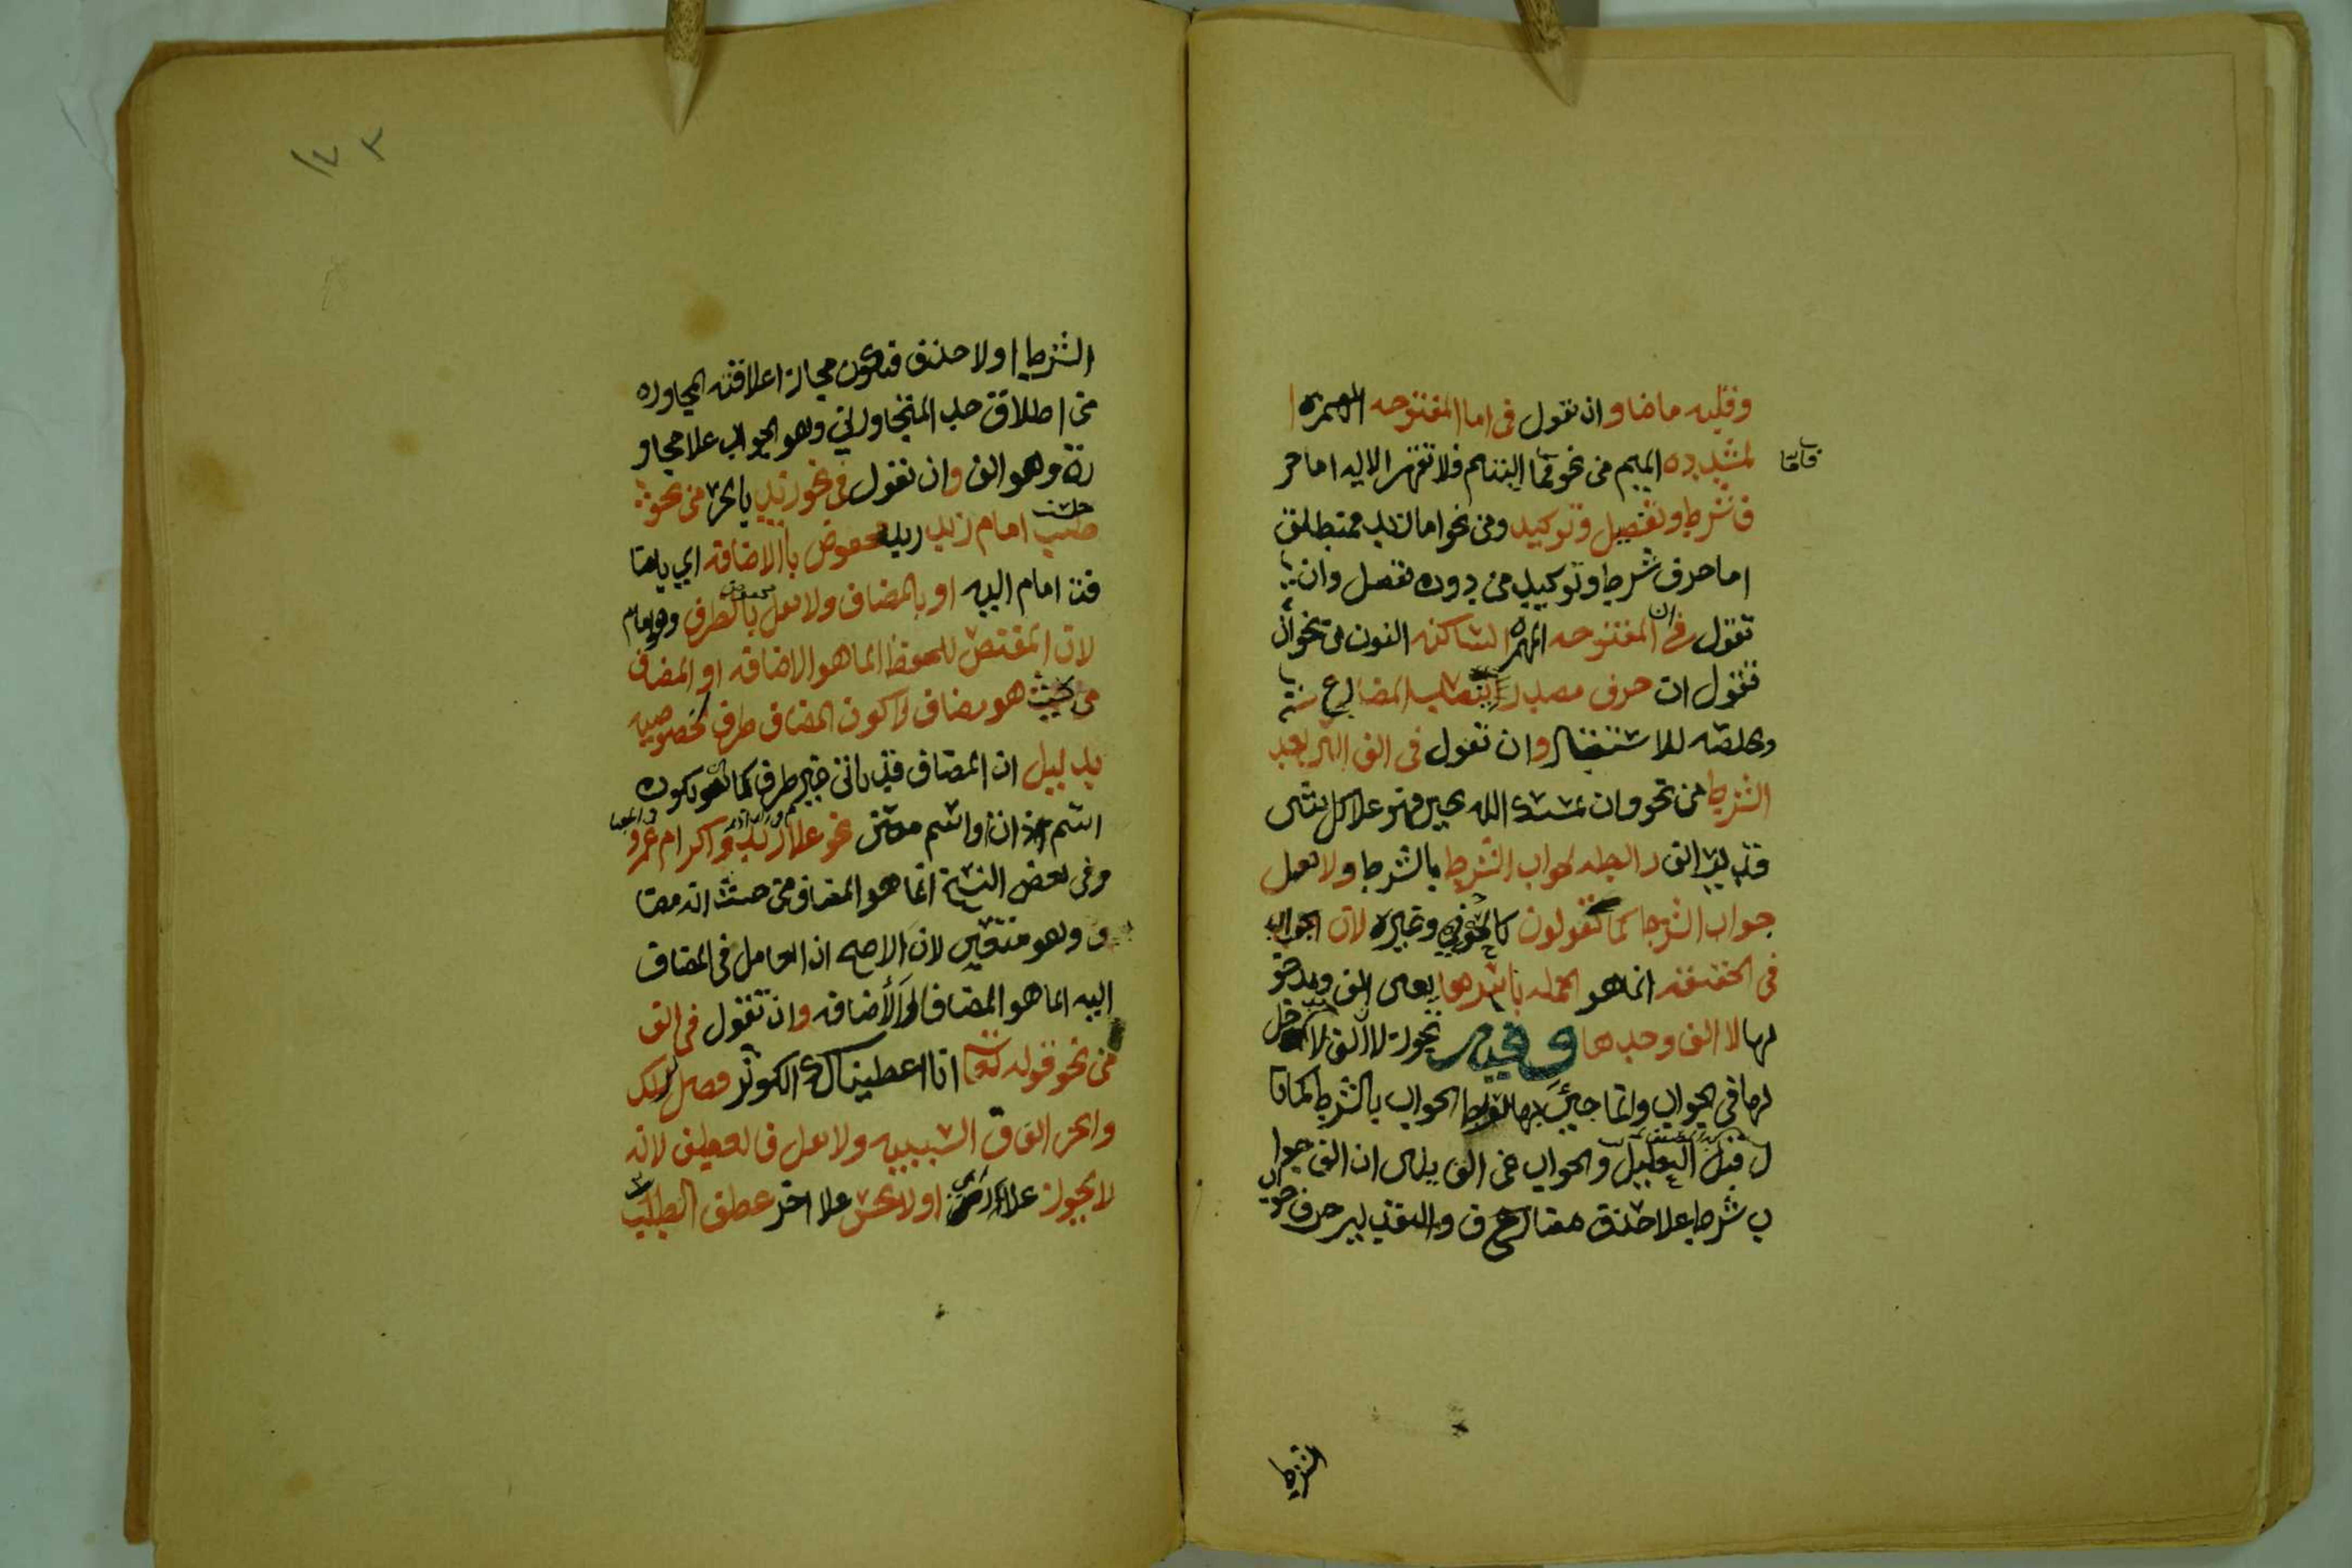 وقلبه ماضيا وان نقول فى اما المفتوحه الهمزه ا
لمشدده الميم من نحو فاما اليتيم فلا تقهر الايه اما حر
فاما
ف شرط وتفصيل وتوكيد ومن نحو اما زيد فمنطلق
اما حرف شرط وتوكيد من دون تفصل وان
تقول فى ان المفتوحه الهمزه الساكنه النون من نحو ان
تقول ان حرف مصدر ينصب المضارع
ويخلصه للاستقبال وان تقول فى الف التى بعد
الشرط من نحو وان يمسسك الله بخير فهو على كل شى
قدير الف رابطه لجواب الشرط بالشرط ولا تقل
جواب الشرط كما تقولون كالحوفي وغيره لان الجواب
فى الحقيقه انما هو الجمله باسرها يعنى الف ومدخو
لها لا الف وحدها وفيه تجوز لا الف لا دخل
لها فى الجواب وانما جيئ بها لتربط الجواب بالشرط كما قا
ل قبل التعليل والجواب عن الف يقال ان الف جوا
ب شرط علا حذف مضاف والتقدير حرف جواب
الشرط
١٧٣
الشرط اولا حذف فتكون مجازا علاقته المجاوره
من اطلاق حد المتجاورين وهو الجواب علا مجاو
رة وهو الف وان نقول فى نحو زيد بالجر من نحو
جلست امام زيد زيد مخفوض باالاضافه اي باضا
فت امام اليه او بالمضاف ولا تقل مخفوض بالظرف وهو امام
لان المقتضى للخفظ انما هو الاضافه او المضاف
من حيث هو مضاف لا كون المضاف ظرف لخصوصيه
بدليل ان المضاف قد ياتى غير ظرف كما انه يكون
اسم ذات او اسم معنى نحو غلام زيد واكرام عمرو
وفى بعض النسخ انما هو المضاف من حيث انه مضا
ف وهو متعين لان الاصح ان العامل فى المضاف
اليه انما هو المضاف لا الأضافه وان تقول فى الف
من نحو قوله تعا انا اعطيناك الكوثر فصل لربك
وانحر الف ف السببيه ولا تقل فا لعطف لانه
لا يجوز علا راى او لا يحسن علا اخر عطف الطلب